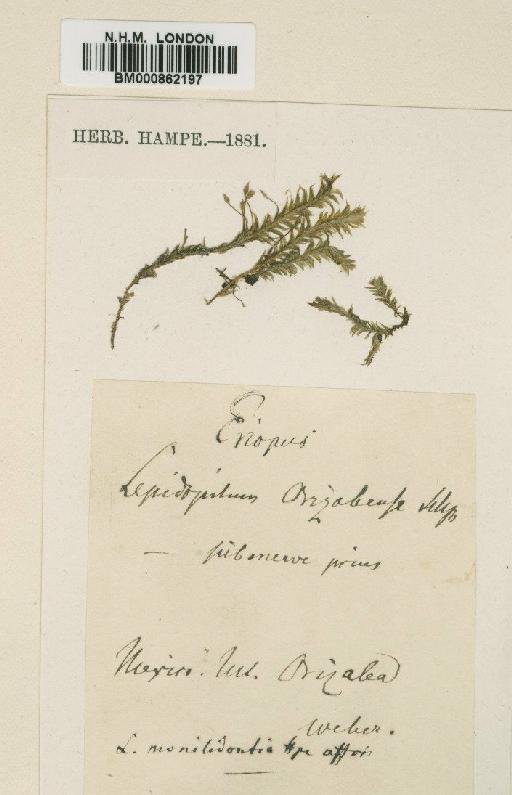 N.H.M. LONDON
BM000862197
HERB. HAMPE.—1881.
Eriopus
Lepidopilum Orizabense Schp
— subenerve prius
Mexico. Orizaba
Weber.
L. affin